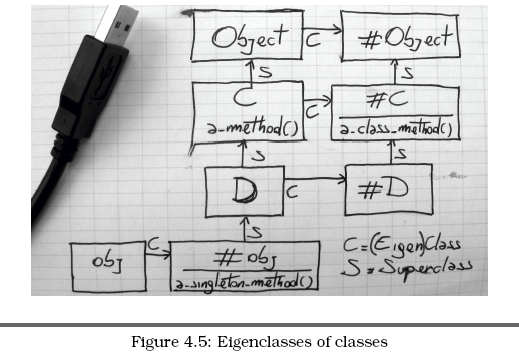 Object
C
#Object
S
S
C
a-method()
C
#C
a-class-method()
S
S
D
C
#D
S
obj
C
#obj
a-singleton-method()
C=(Eigen)Class
S=Superclass
Figure 4.5: Eigenclasses of classes